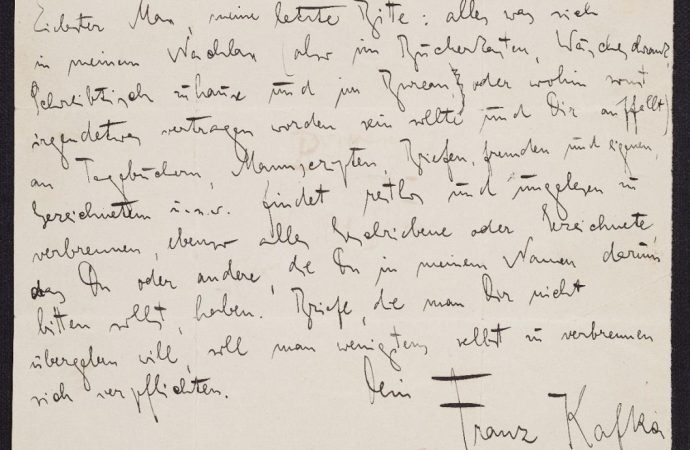 Liebster Max, meine letzte Bitte: alles was sich
in meinem Nachlass (also im Bücherkasten, Wäscheschrank,
Schreibtisch zuhause und im Bureau, oder wohin sonst
irgendetwas vertragen worden sein sollte und Dir auffällt)
an Tagebüchern, Manuscripten, Briefen, fremden und eigenen,
Gezeichnetem u.s.w. findet restlos und ungelesen zu
verbrennen, ebenso alles Geschriebene oder Gezeichnete,
das Du oder andere, die Du in meinem Namen darum
bitten sollst, haben. Briefe, die man Dir nicht
übergeben will, soll man wenigstens selbst zu verbrennen
sich verpflichten.
Dein
Franz Kafka